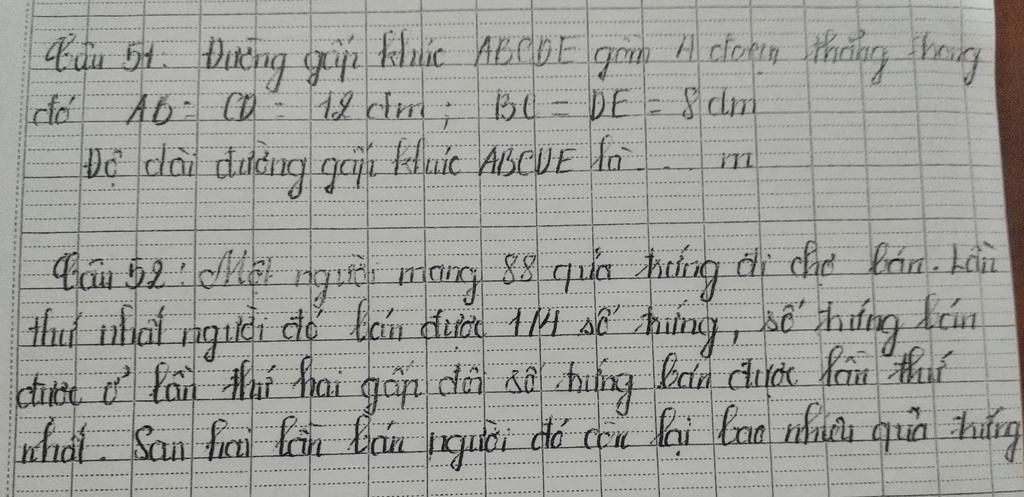 Câu 51. Đường gấp khúc ABCDE gồm 4 đoạn thẳng trong
đó AB = CD = 12 dm; BC = DE = 8 dm
Độ dài đường gấp khúc ABCDE là ... m
Câu 52: Một người mang 88 quả trứng đi chợ bán. Lần
thứ nhất người đó bán được 1/4 số trứng, số trứng bán
được ở lần thứ hai gấp đôi số trứng bán được lần thứ
nhất. Sau hai lần bán người đó còn lại bao nhiêu quả trứng